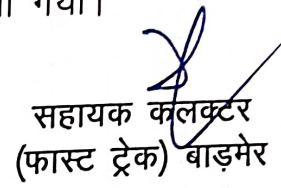 गया।
सहायक कलक्टर
(फास्ट ट्रेक) बाड़मेर